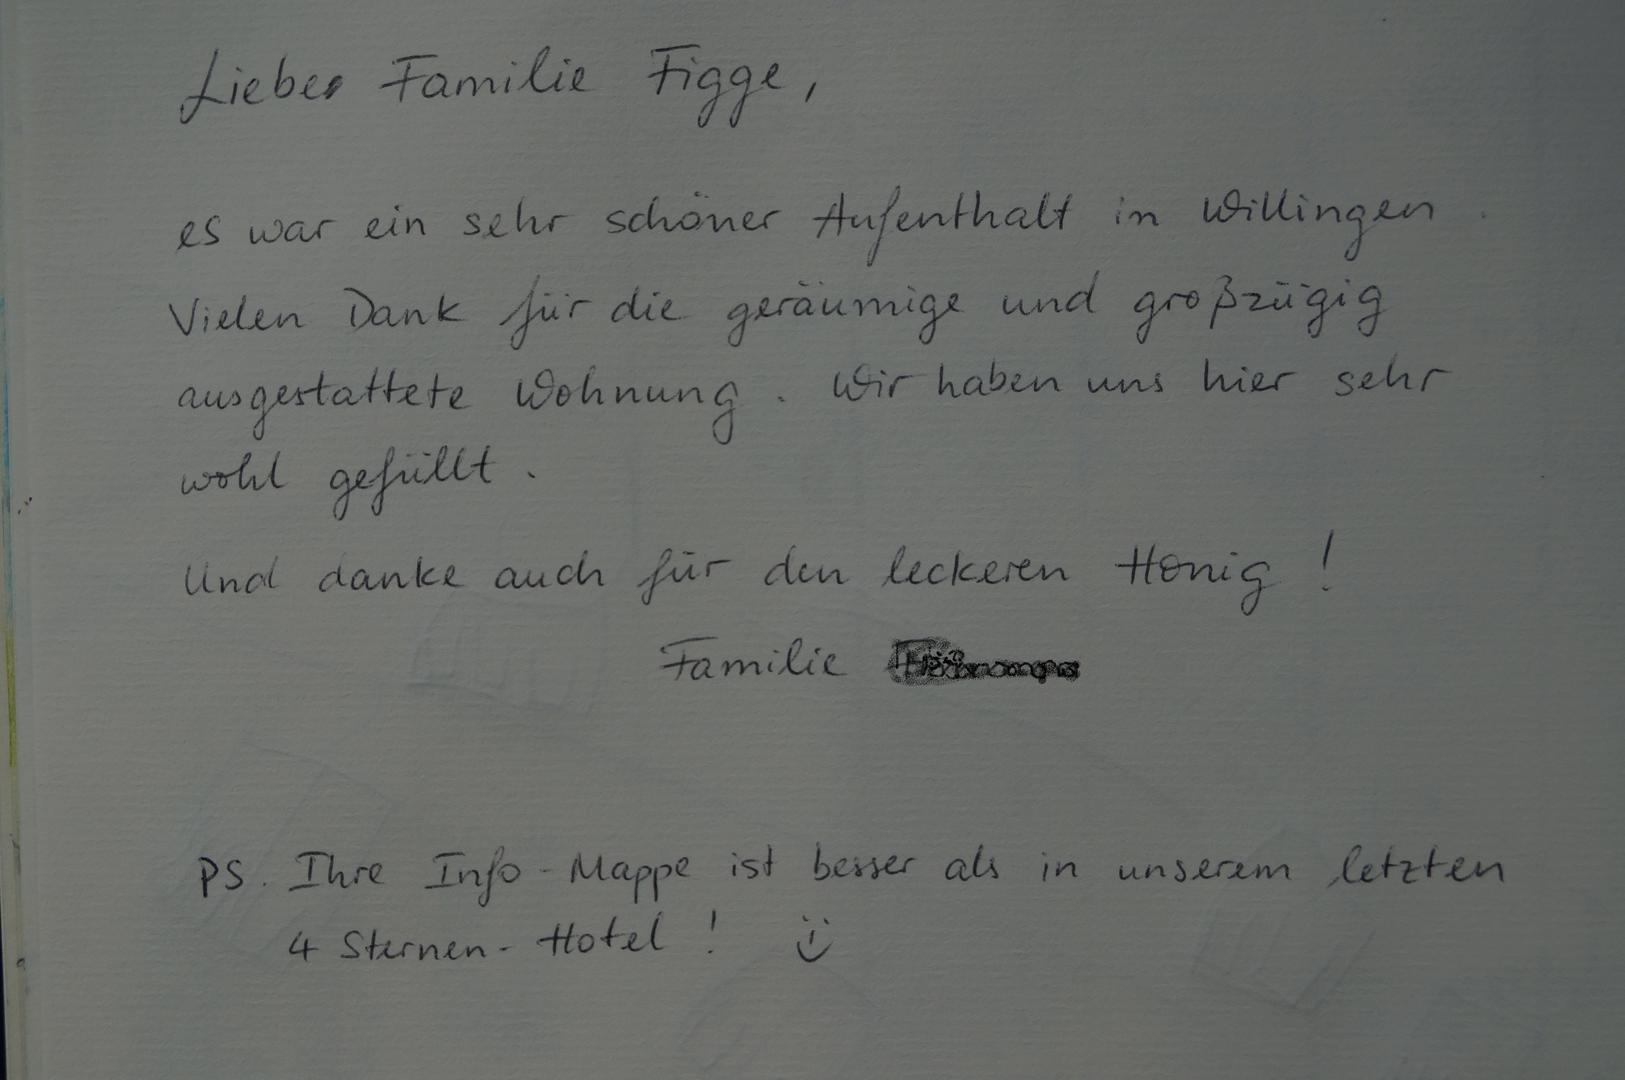 Liebe Familie Figge,
es war ein sehr schöner Aufenthalt in Willingen.
Vielen Dank für die geräumige und großzügig
ausgestattete Wohnung. Wir haben uns hier sehr
wohl gefüllt.
Und danke auch für den leckeren Honig!
Familie
PS. Ihre Info-Mappe ist besser als in unserem letzten
4 Sternen-Hotel! :)